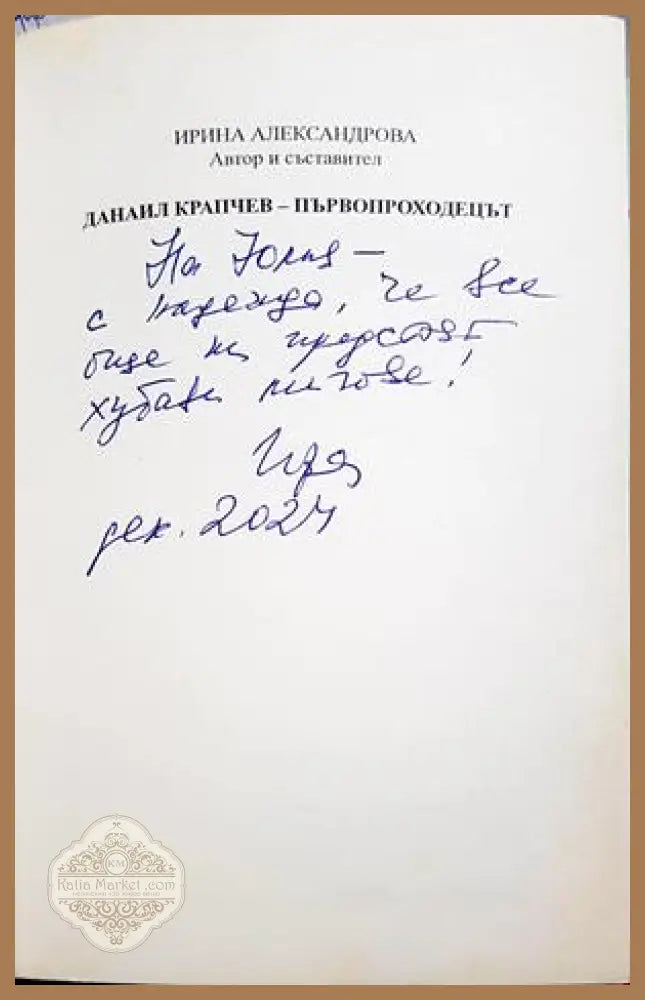 ИРИНА АЛЕКСАНДРОВА
Автор и съставител
ДАНАИЛ КРАПЧЕВ – ПЪРВОПРОХОДЕЦЪТ
На Юлия –
с надежда, че все
още ни предстоят
хубави мигове!
Ира
дек. 2024
KM
Katia Market .com